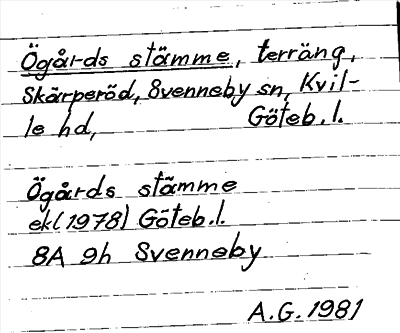 Ögårds stämme, terräng,
Skärperöd, Svenneby sn, Kvil-
le hd, Göteb.l.
Ögårds stämme
ek(1978) Göteb.l.
8A 9h Svenneby
A.G.1981